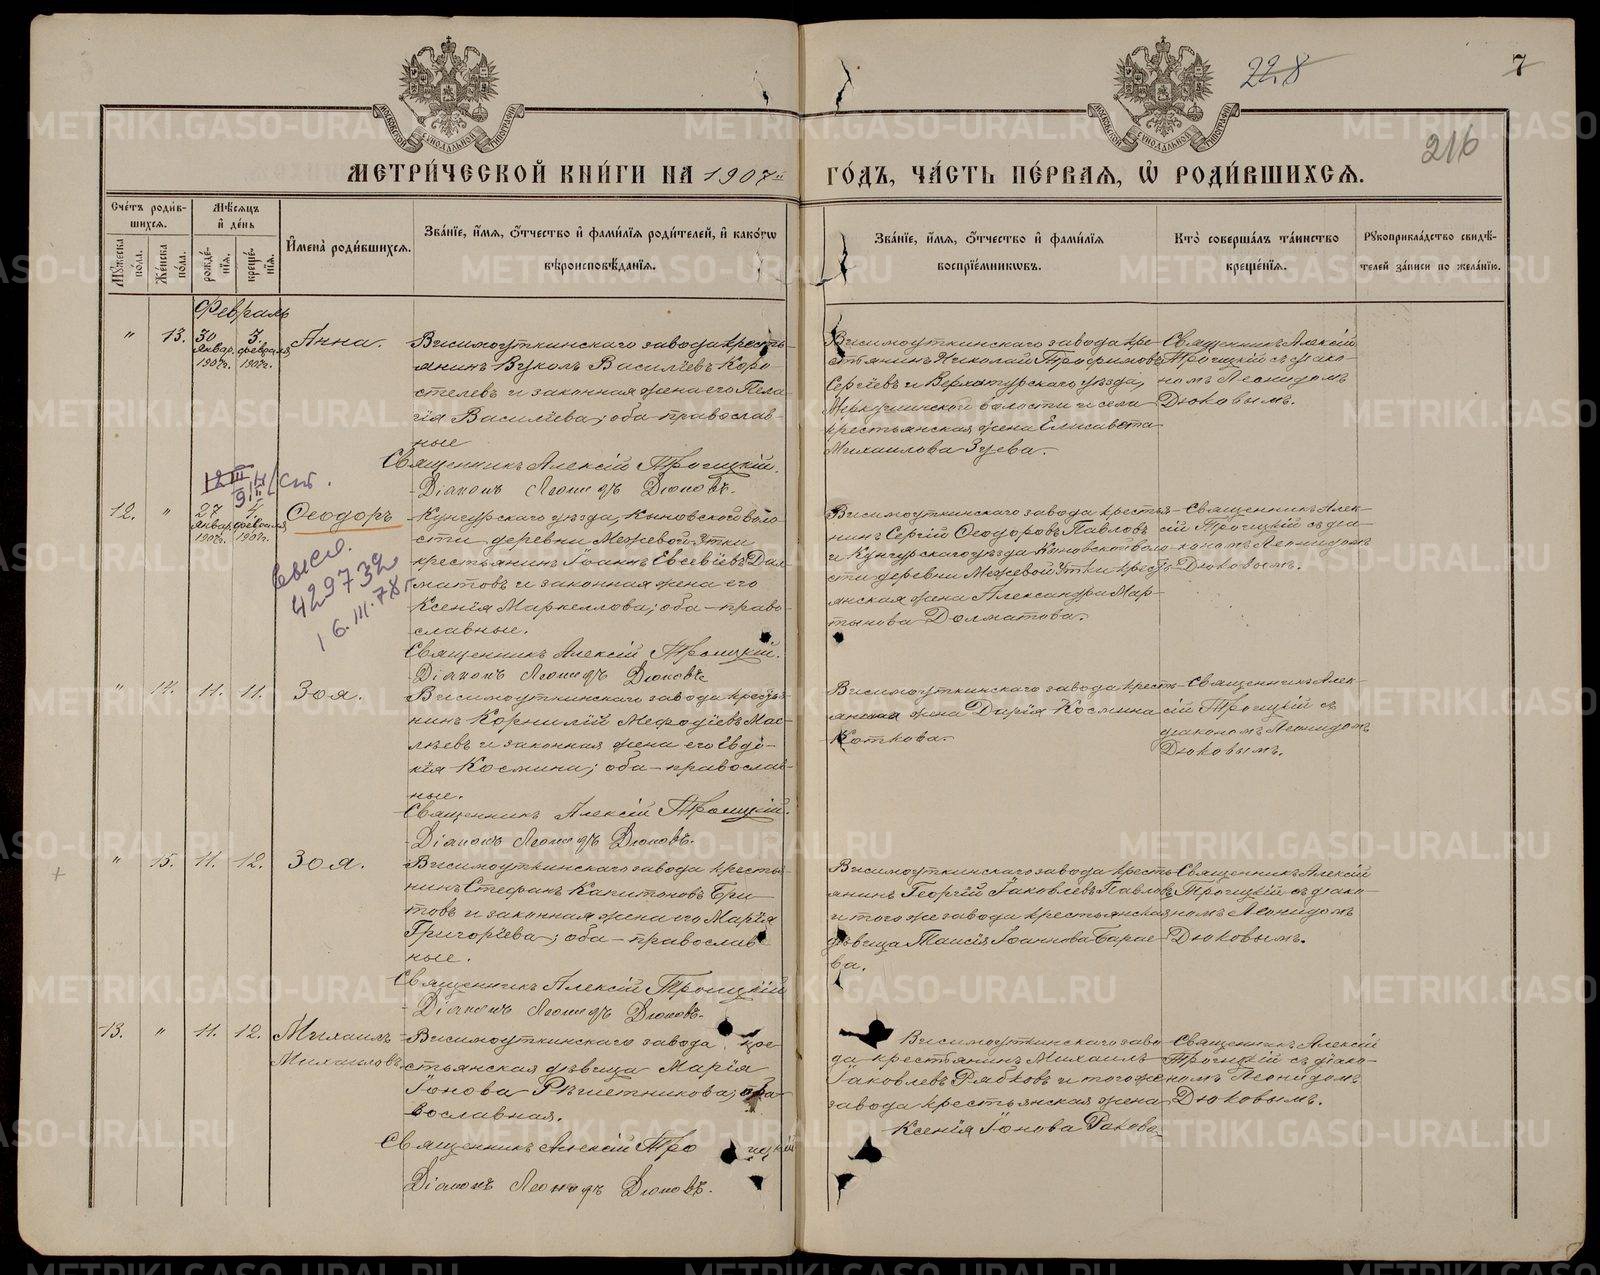 22.8
7
216
МОСКОВСКОЙ СѴНОДАЛЬНОЙ ТИПОГРАФІИ
МОСКОВСКОЙ СѴНОДАЛЬНОЙ ТИПОГРАФІИ
МЕТРИ́ЧЕСКОЙ КНИ́ГИ НА 1907й ГО́ДЪ, ЧА́СТЬ ПЕ́РВАѦ, Ѡ РОДИ́ВШИХСѦ.
Сче́тъ роди́в-
шихсѧ.
Мѣ́сѧцъ
и҆ де́нь
Мꙋ́жеска по́ла.
Же́нска по́ла.
рожде́-
нїѧ.
креще́-
нїѧ.
И҆мена̀ роди́вшихсѧ.
Зва́нїе, и҆́мѧ, ѻ҆́тчество и҆ фами́лїѧ роди́телей, и҆ како́гѡ
вѣроисповѣ́данїѧ.
Зва́нїе, и҆́мѧ, ѻ҆́тчество и҆ фами́лїѧ
воспрїе́мникѡвъ.
Кто̀ соверша́лъ та́инство
креще́нїѧ.
Рꙋкоприкла́дство свидѣ́-
телей за́писи по жела́нїю.
Февраль
" 13. 30 Январ. 1907г. 3. февраля 1907г. Анна.
Висимоуткинскаго завода кресть-
янинъ Вуколъ Василіевъ Коро-
стелевъ и законная жена его Пела-
гія Василіева; оба православ-
ные
Священникъ Алексій Троицкій.
Діаконъ Леонидъ Дюковъ.
Висимоуткинскаго завода кре-
стьянинъ Николай Трофимовъ
Сергіевъ и Верхотурскаго уѣзда,
Меркушинской волости и села
крестьянская жена Елисавета
Михаилова Зуева.
Священникъ Алексій
Троицкій съ діако-
номъ Леонидомъ
Дюковымъ.
12. " 27 Январ. 1907г. 4. февраля 1907г. Ѳеодоръ
429732
Кунгурскаго уѣзда, Кыновской воло-
сти деревни Межевой Утки
крестьянинъ Іоаннъ Евсевіевъ Дол-
матовъ и законная жена его
Ксенія Маркеллова; оба право-
славные.
Священникъ Алексій Троицкій.
Діаконъ Леонидъ Дюковъ
Висимоуткинскаго завода кресть-
нинъ Сергій Ѳеодоровъ Павловъ
и Кунгурскаго уѣзда Кыновской воло-
сти деревни Межевой Утки кресть-
янская жена Александра Мар-
тынова Долматова.
Священникъ Алек-
сій Троицкій съ діа-
кономъ Леонидомъ
Дюковымъ.
" 14. 11. 11. Зоя.
Висимоуткинскаго завода крестья-
нинъ Корнилій Меѳодіевъ Мас-
лѣевъ и законная жена его Евдо-
кія Космина; оба православ-
ные.
Священникъ Алексій Троицкій.
Діаконъ Леонидъ Дюковъ.
Висимоуткинскаго завода кресть-
янская жена Дарія Космина
Коткова.
Священникъ Алек-
сій Троицкій съ
діакономъ Леонидомъ
Дюковымъ.
" 15. 11. 12. Зоя.
Висимоуткинскаго завода крестья-
нинъ Стефанъ Капитоновъ Бри-
товъ и законная жена его Марія
Григоріева; оба православ-
ные.
Священникъ Алексій Троицкій
Діаконъ Леонидъ Дюковъ.
Висимоуткинскаго завода кресть-
янинъ Георгій Іаковлевъ Павловъ
и того же завода крестьянская
дѣвица Таисія Іоаннова Барае-
ва.
Священникъ Алексій
Троицкій съ діако-
номъ Леонидомъ
Дюковымъ.
13. " 11. 12. Михаилъ
Михаиловъ
Висимоуткинскаго завода кре-
стьянская дѣвица Марія
Іонова Рѣшетникова; пра-
вославная.
Священникъ Алексій Троицкій
Діаконъ Леонидъ Дюковъ.
Висимоуткинскаго заво-
да крестьянинъ Михаилъ
Іаковлевъ Рябковъ и того же
завода крестьянская жена
Ксенія Іонова Ракова
Священникъ Алексій
Троицкій съ діако-
номъ Леонидомъ
Дюковымъ.
METRIKI.GASO-URAL.RU